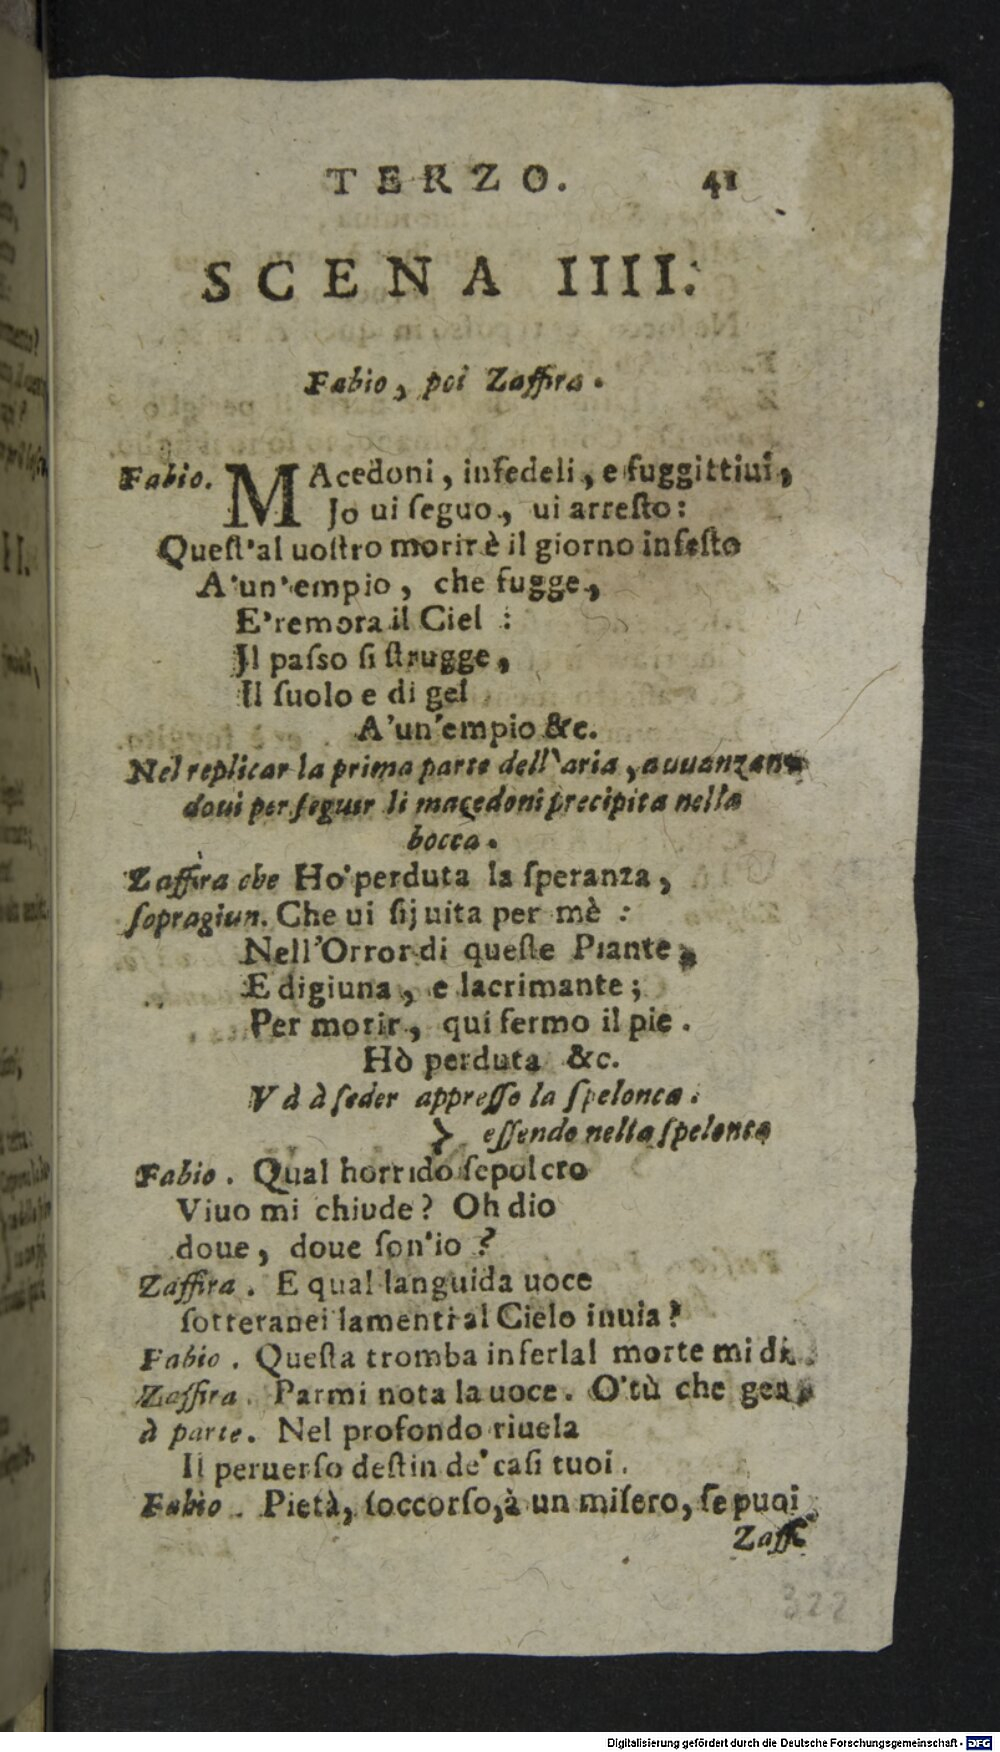 TERZO. 41
SCENA IIII.
Fabio, poi Zaffira.
Fabio. MAcedoni, infedeli, e fuggittiui,
Jo ui ſeguo, ui arreſto:
Queſt'al uoſtro morir è il giorno infeſto
A'un'empio, che fugge,
E'remora il Ciel:
Il paſso ſi ſtrugge,
Il ſuolo e di gel
A'un'empio &c.
Nel replicar la prima parte dell'aria, auuanzan
doui per ſeguir li macedoni precipita nella
bocca.
Zaffira che Ho'perduta la ſperanza,
ſopragiun. Che ui ſij uita per mè:
Nell'Orror di queſte Piante,
E digiuna, e lacrimante;
Per morir, qui fermo il pie.
Hò perduta &c.
Và à ſeder appreſſo la ſpelonca.
} eſſendo nella ſpelonca
Fabio. Qual horrido ſepolcro
Viuo mi chiude? Oh dio
doue, doue ſon'io?
Zaffira. E qual languida uoce
ſotteranei lamenti al Cielo inuia?
Fabio. Queſta tromba inferlal morte mi dà.
Zaffira. Parmi nota la uoce. O'tù che
à parte. Nel profondo riuela
Il peruerſo deſtin de'caſi tuoi.
Fabio. Pietà, ſoccorſo, à un miſero, ſe puoi
Zaff.
322
Digitalisierung gefördert durch die Deutsche Forschungsgemeinschaft - DFG